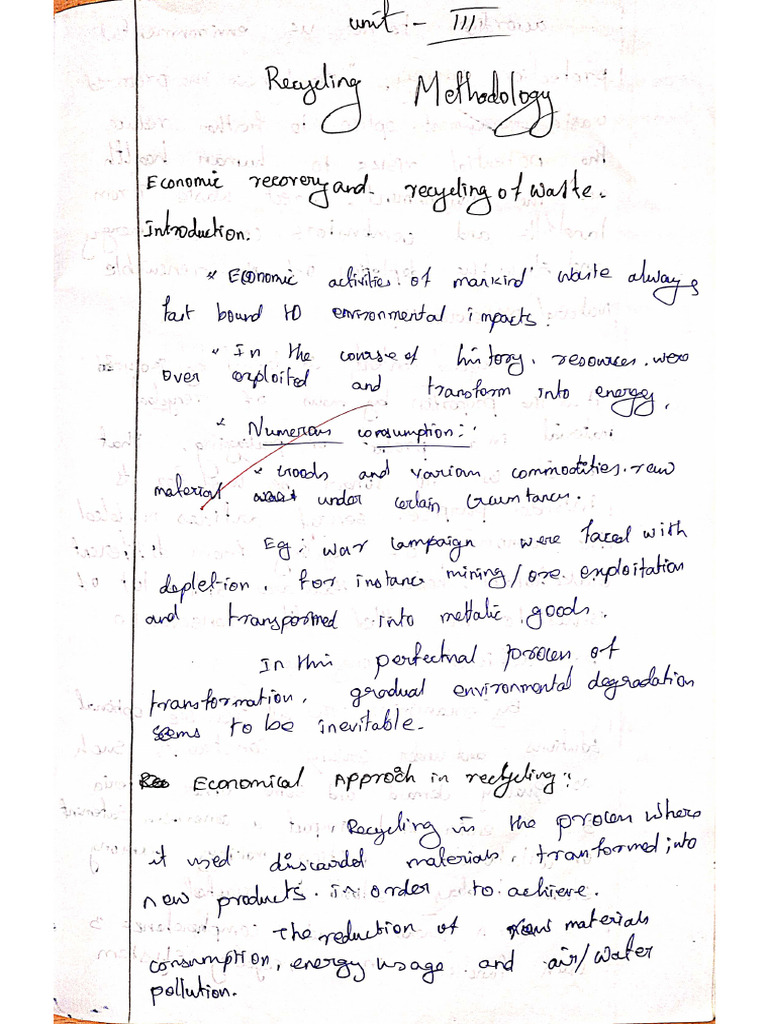 unit :- III
Recycling Methodology
Economic recovery and recycling of waste.
Introduction.
* Economic activities of mankind waste always
fast bound to environmental impacts.
* In the course of history, resources were
over exploited and transform into energy.
* Numerous consumption:
* Goods and various commodities. raw
material under certain
Eg: war campaign were faced with
depletion. for instance mining/ore exploitation
and transformed into metalic goods.
In this process of
transformation, gradual environmental degradation
seems to be inevitable.
Economical Approch in recycling:
Recycling is the process where
it used discarded materials, transformed into
new products. in order to achieve.
The reduction of raw materials
consumption, energy usage and air/water
pollution.